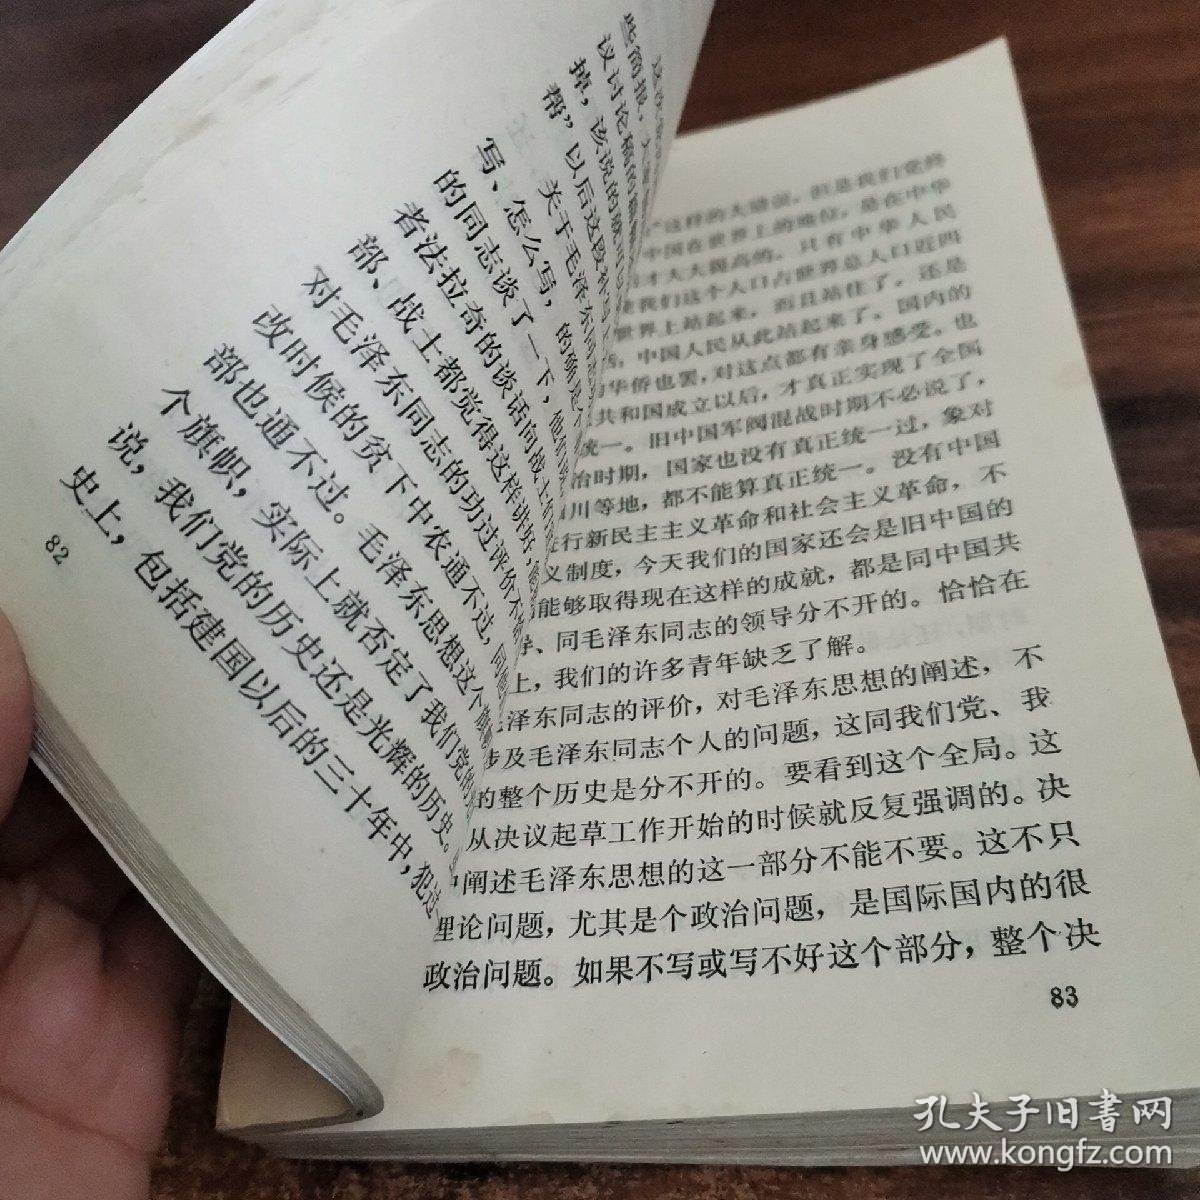 些简报，大
议讨论稿的
掉，该说的
帮”以后这段
关于毛泽东同志
写、怎么写，的确是个
的同志谈了一下，他们
者法拉奇的谈话向战士
部、战士都觉得这样讲好，
对毛泽东同志的功过评价不
改时候的贫下中农通不过，同
部也通不过。毛泽东思想这个旗
个旗帜，实际上就否定了我们党的
说，我们党的历史还是光辉的历史。
史上，包括建国以后的三十年中，犯过
82
”这样的大错误，但是我们党终
中国在世界上的地位，是在中华
后才大大提高的。只有中华人民
使我们这个人口占世界总人口近四
世界上站起来，而且站住了。还是
话，中国人民从此站起来了。国内的
的华侨也罢，对这点都有亲身感受。也
共和国成立以后，才真正实现了全国
统一。旧中国军阀混战时期不必说了，
治时期，国家也没有真正统一过，象对
四川等地，都不能算真正统一。没有中国
进行新民主主义革命和社会主义革命，不
义制度，今天我们的国家还会是旧中国的
能够取得现在这样的成就，都是同中国共
导、同毛泽东同志的领导分不开的。恰恰在
上，我们的许多青年缺乏了解。
毛泽东同志的评价，对毛泽东思想的阐述，不
涉及毛泽东同志个人的问题，这同我们党、我
的整个历史是分不开的。要看到这个全局。这
从决议起草工作开始的时候就反复强调的。决
中阐述毛泽东思想的这一部分不能不要。这不只
理论问题，尤其是个政治问题，是国际国内的很
政治问题。如果不写或写不好这个部分，整个决
83
孔夫子旧書网
www.kongfz.com